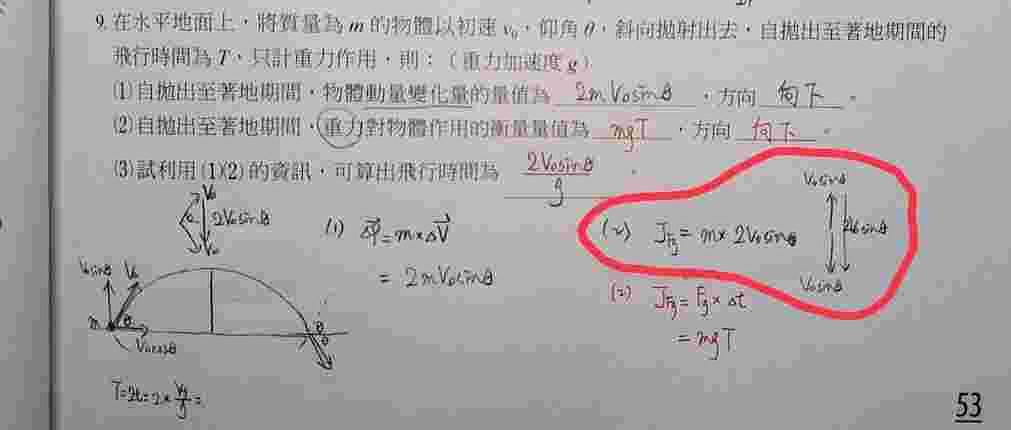 9. 在水平地面上，將質量為 m 的物體以初速 v₀，仰角 θ，斜向拋射出去，自拋出至著地期間的
飛行時間為 T，只計重力作用，則：（重力加速度 g）
(1)自拋出至著地期間，物體動量變化量的量值為 2mV₀sinθ ，方向 向下 。
(2)自拋出至著地期間，重力對物體作用的衝量量值為 mgT ，方向 向下 。
(3)試利用(1)(2)的資訊，可算出飛行時間為 2V₀sinθ/g 。
V₀
2V₀sinθ
V₀
(1) ΔP=m×ΔV
= 2mV₀sinθ
(2) J_Fg = m×2V₀sinθ
V₀sinθ
2V₀sinθ
V₀sinθ
(2) J_Fg = Fg×Δt
= mgT
V₀sinθ V₀
m θ
V₀cosθ
θ
T=2t=2×Vy/g=
53